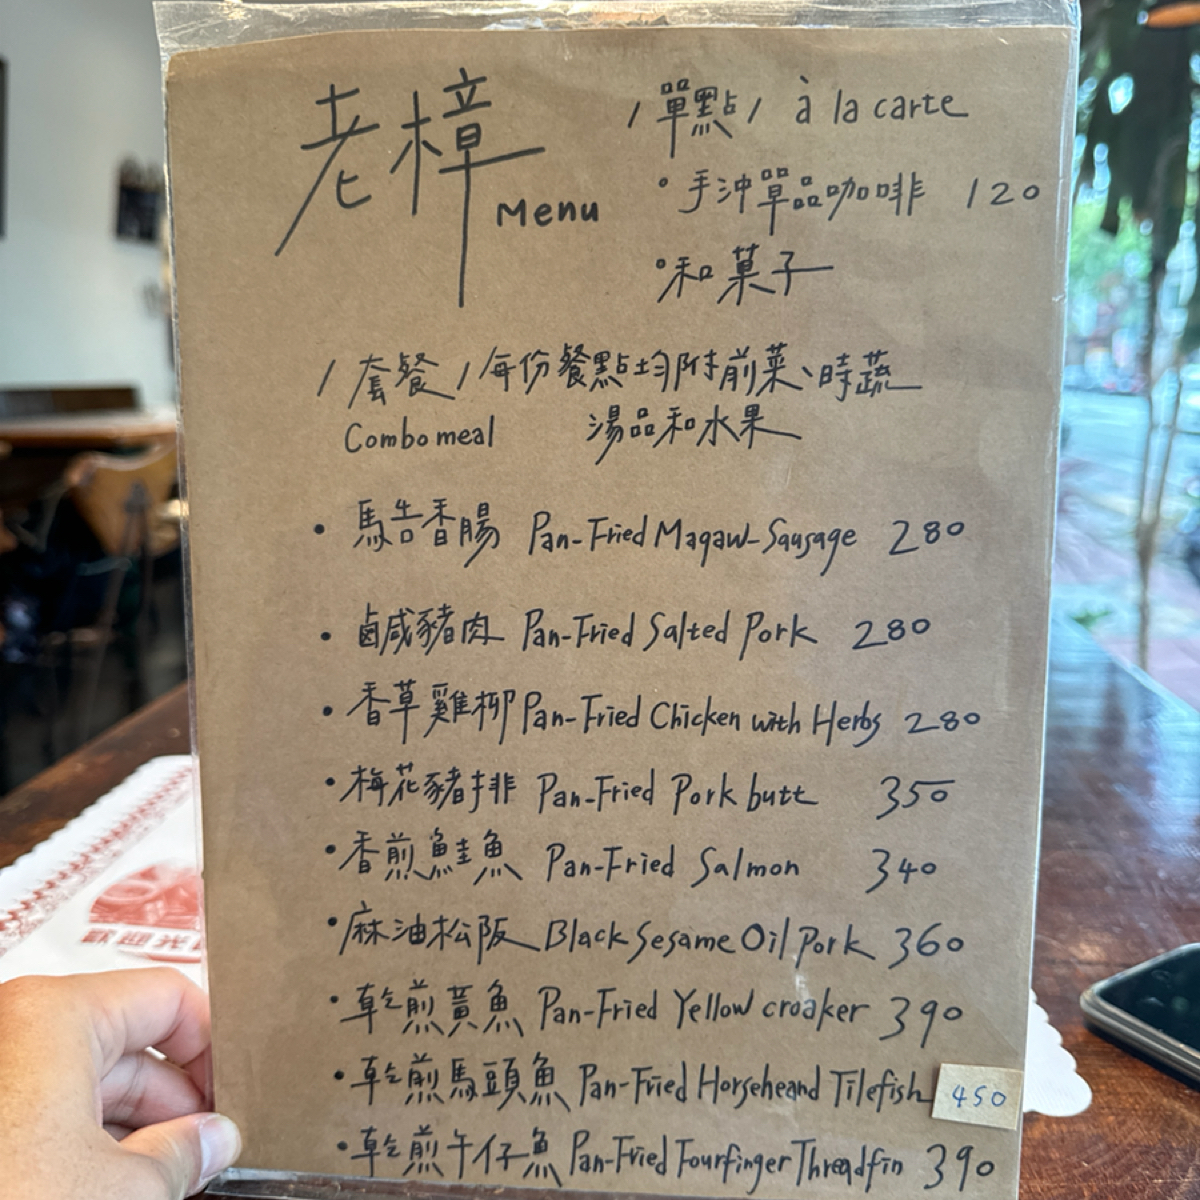 老樟 Menu
/單點/ à la carte
• 手沖單品咖啡 120
• 和菓子
/套餐/每份餐點均附前菜、時蔬
Combo meal 湯品和水果
• 馬告香腸 Pan-Fried Magaw-Sausage 280
• 鹵咸豬肉 Pan-Fried Salted Pork 280
• 香草雞柳 Pan-Fried Chicken with Herbs 280
• 梅花豬排 Pan-Fried Pork butt 350
• 香煎鮭魚 Pan-Fried Salmon 340
• 麻油松阪 Black Sesame Oil Pork 360
• 乾煎黃魚 Pan-Fried Yellow croaker 390
• 乾煎馬頭魚 Pan-Fried Horseheand Tilefish 450
• 乾煎午仔魚 Pan-Fried Fourfinger Threadfin 390
歡迎光